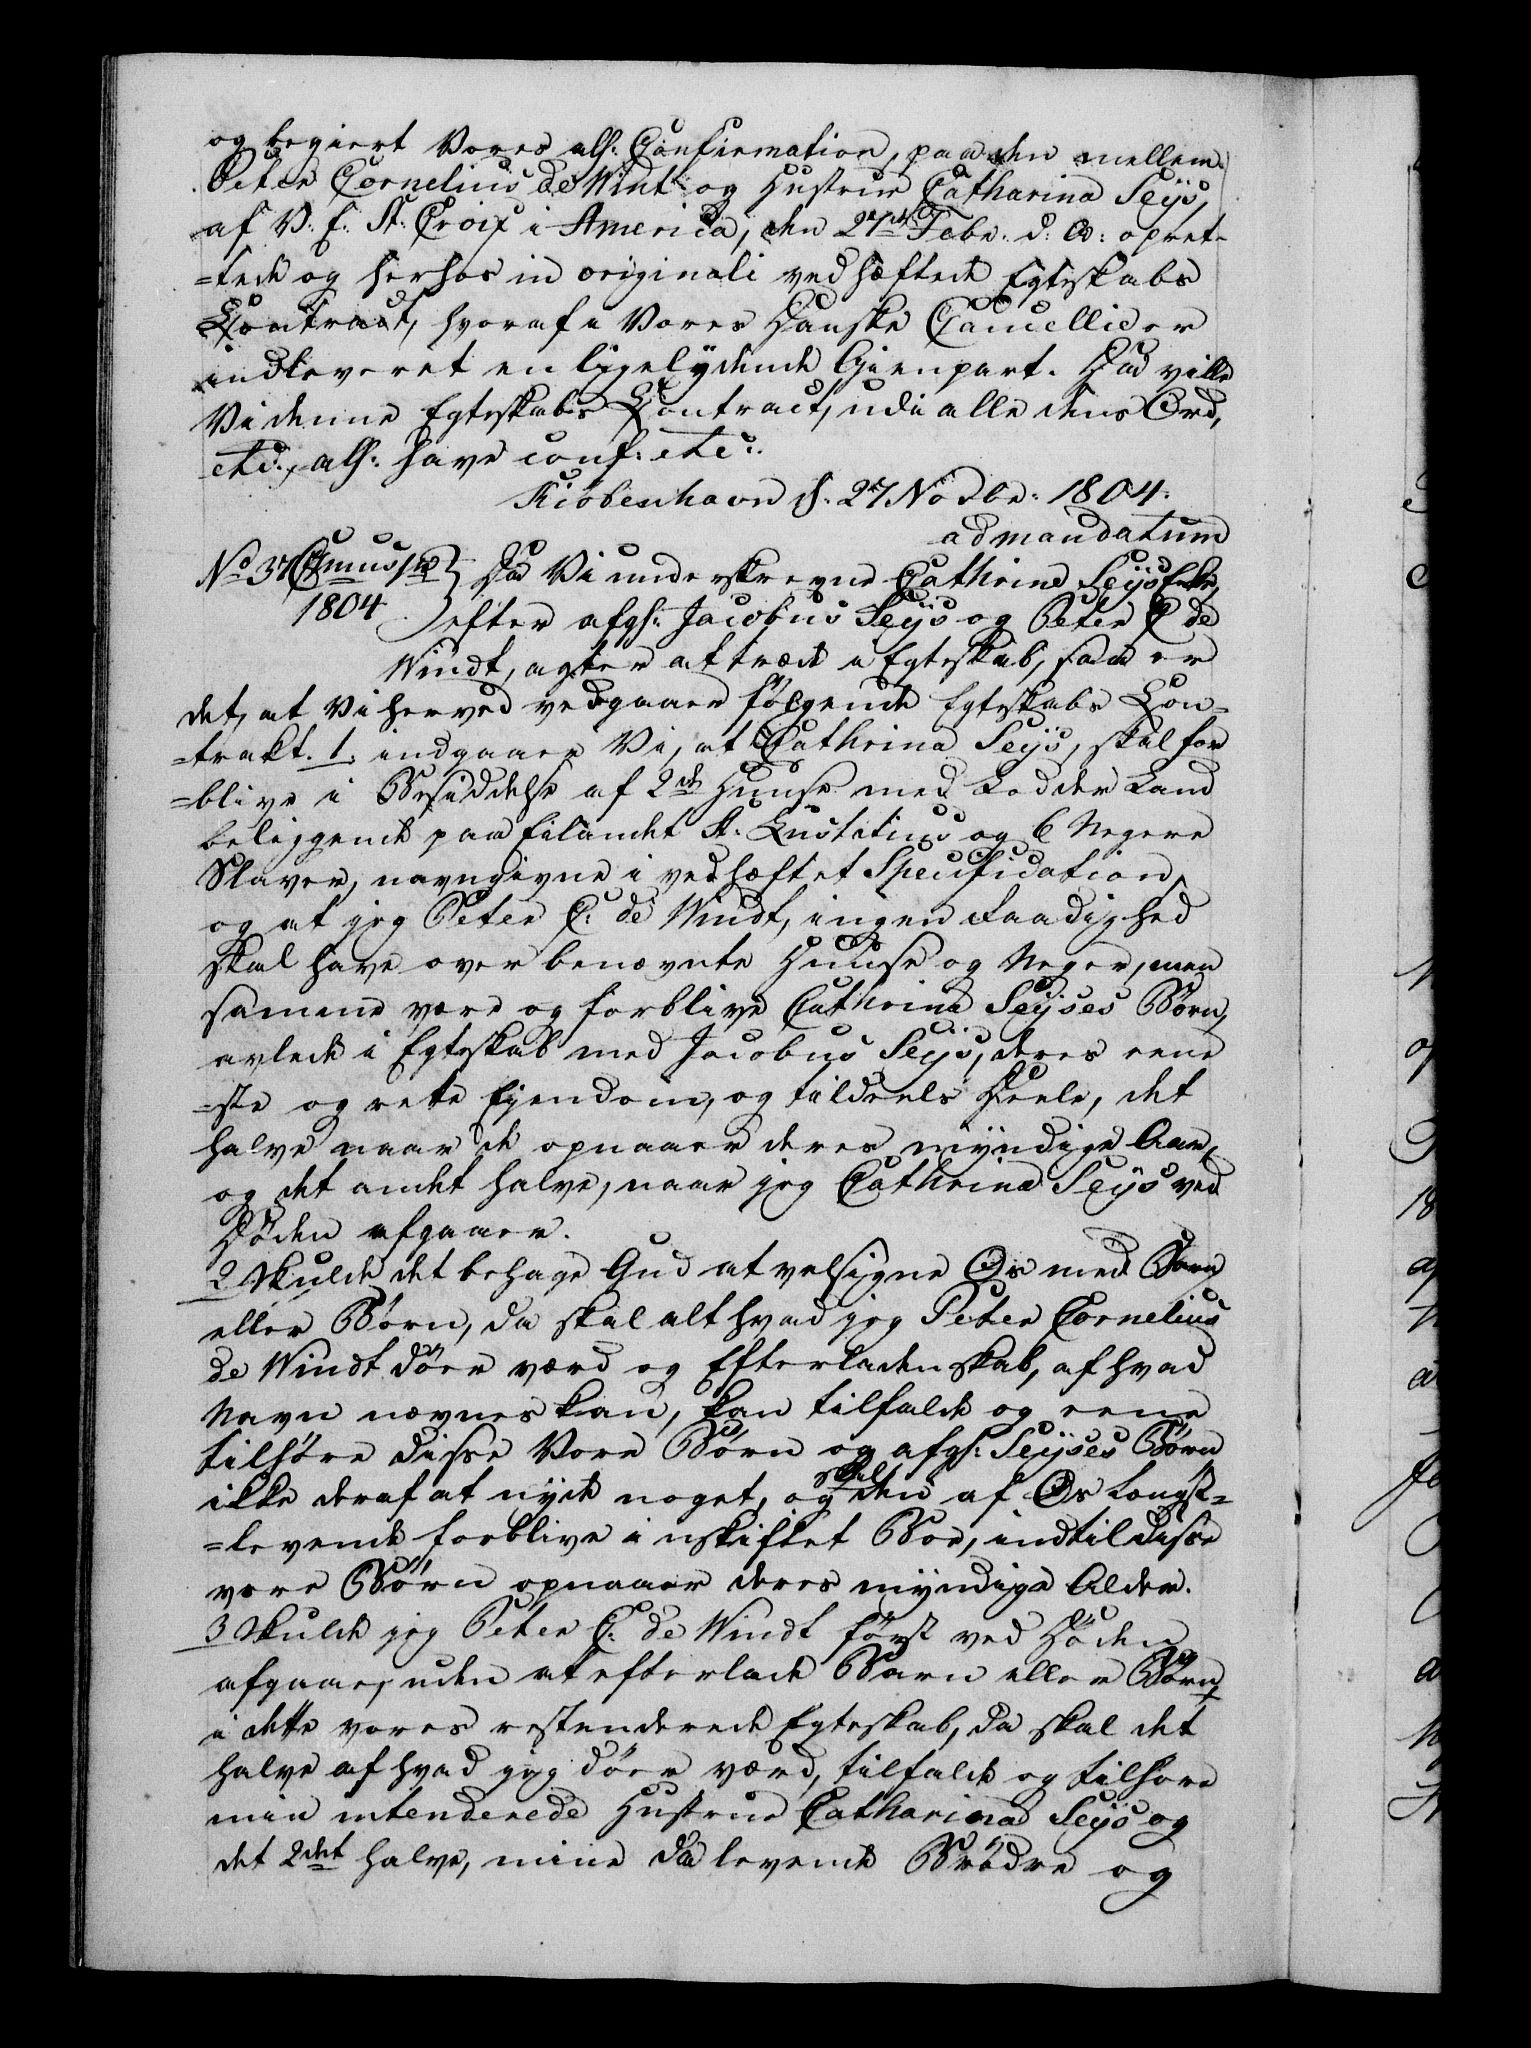 og begiert Vores alh: Confirmation, paa den mellem
Peter Cornelius de Windt og Hustrue Catharina Seijs,
af V: E: St: Croix i America, den 27de Febr. d: A: opret-
=tede og herhos in originali vedhæftede Egteskabs
Contract, hvoraf i Vores Danske Cancellie er
indleveret en ligelÿdende Gienpart. Da ville
Vi denne Egteskabs Contract, udi alle dens Ord,
etc:, alh: have conf: etc:.
Kiøbenhavn d: 27 Novbr: 1804.
ad mandatum
No 37
1804
Da Vi underskrevne Cathrina Seijs Enke,
efter afgh: Jacobus Seijs og Peter C de
Windt, agter at træde i Egteskab, saa er
det, at Vi herved vedgaaer følgende Egteskabs Con-
=trakt. 1. indgaaer Vi, at Cathrina Seijs, skal for
=blive i Besiddelse af 2de Huuse med Lodder Land
beliggende paa Eilandet St: Eustatius og 6 Negere
Slaver, navngivne i vedhæftet Specification,
og at jeg Peter C: de Windt, ingen Raadighed
skal have over benævnte Huuse og Neger, men
samme være og forblive Cathrina Seijses Børn,
avlede i Egteskab med Jacobus Seijs, deres eene
=ste og rette Ejendom, og tildeels Deele, det
halve naar de opnaaer deres mÿndige Aar,
og det andet halve, naar jeg Cathrina Seijs ved
Døden afgaaer.
2 Skulde det behage Gud at velsigne Os med Barn
eller Børn, da skal alt hvad jeg Peter Cornelius
de Windt døer værd og Efterladenskab, af hvad
Navn nævnes kan, kan tilfalde og eene
tilhøre disse Vore Børn og afgh: Seijses Børn
ikke deraf at nÿde noget, og skal den af Os Længst-
=levende forblive i uskiftet Boe, indtil disse
vore Børn opnaaer deres mÿndige Alder.
3 Skulde jeg Peter C: de Windt først ved Døden
afgaae, uden at efterlade Barn eller Børn,
i dette vores intenderede Egteskab, da skal det
halve af hvad jeg døer værd, tilfalde og tilhøre
min intenderede Hustrue Catharina Seijs og
det 2det halve, mine da levende Brødre og